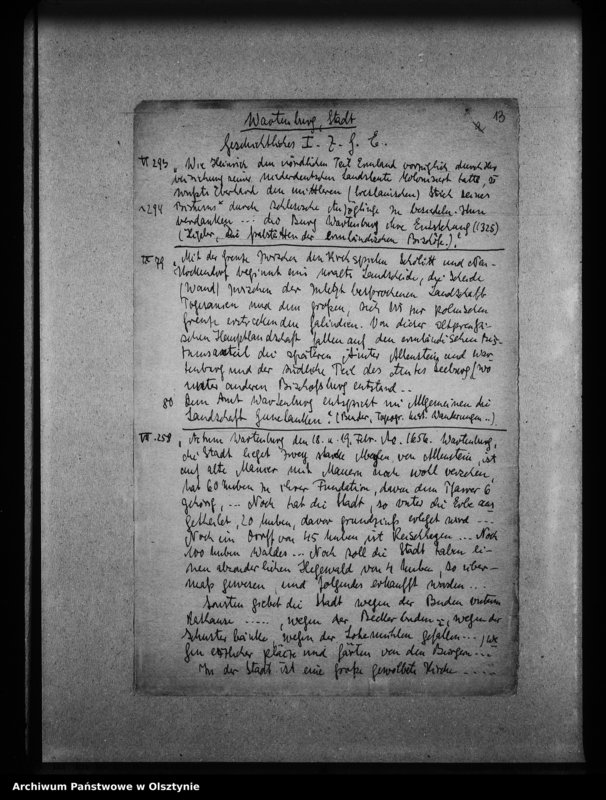 13
Wartenburg, Stadt
Geschichtliches I. Z. f. E.
VI 293 „Wie Heinrich den nördlichen Teil Ermland vorzüglich durch
seiner niederdeutschen Landsleute kolonisiert hatte, so
wußte Eberhard den mittleren (breslauischen) Strich seines
294 Bistums“ durch schlesische zu besiedeln. Ihm
verdanken ... die Burg Wartenburg ihre Entstehung (1325)
die Grabstätten der ermländischen Bischöfe.)
79 „Mit der Grenze zwischen den Kirchspielen Schölitt und
beginnt eine uralte Landscheide, die Scheide
(Wand) zwischen der zuletzt besprochenen Landschaft
und dem großen, sich bis zur polnischen
Grenze erstreckenden Galindien. Von dieser altpreußi-
schen Hauptlandschaft fallen auf den ermländischen Bis-
tumsanteil die späteren Ämter Allenstein und War-
tenburg und der südliche Teil des Amtes Seeburg (wo
unter anderen Bischofsburg entstand ..
80 Dem Amt Wartenburg entspricht im Allgemeinen die
Landschaft Gunelauken.“ (Bender, Topogr. hist. Wanderungen ..)
VII. 258 „Actum Wartenburg den 18. u. 19. Febr. Ao. 1656. Wartenburg,
die Stadt lieget zwey starke Meylen von Allenstein, ist
auf alte Manier mit Mauern noch woll versehen,
hat 60 Huben in ihrer Fundation, davon dem Pfarrer 6
gehörig, ... Noch hat die Stadt, so unter die Erbe aus
getheilet, 20 Huben, davor grundzinß erleget wird ...
Noch ein Dorff von 45 Huben ist Reuschhagen ... Noch
100 Huben Waldes ... Noch soll die Stadt haben ei-
nen absonderlichen Hegewald von 4 Huben, so über-
maß gewesen, und folgendes erkaufft worden ...
Sonsten giebet die Stadt wegen der Buden unterm
Rathause ....., wegen der Becker buden =, wegen der
Schuster bänke, wegen der Lohemühlen gefallen ..., we
gen etzlicher plätze und gärten von den Bürgern ...
In der Stadt ist eine große gewölbete Kirche .....
Archiwum Państwowe w Olsztynie